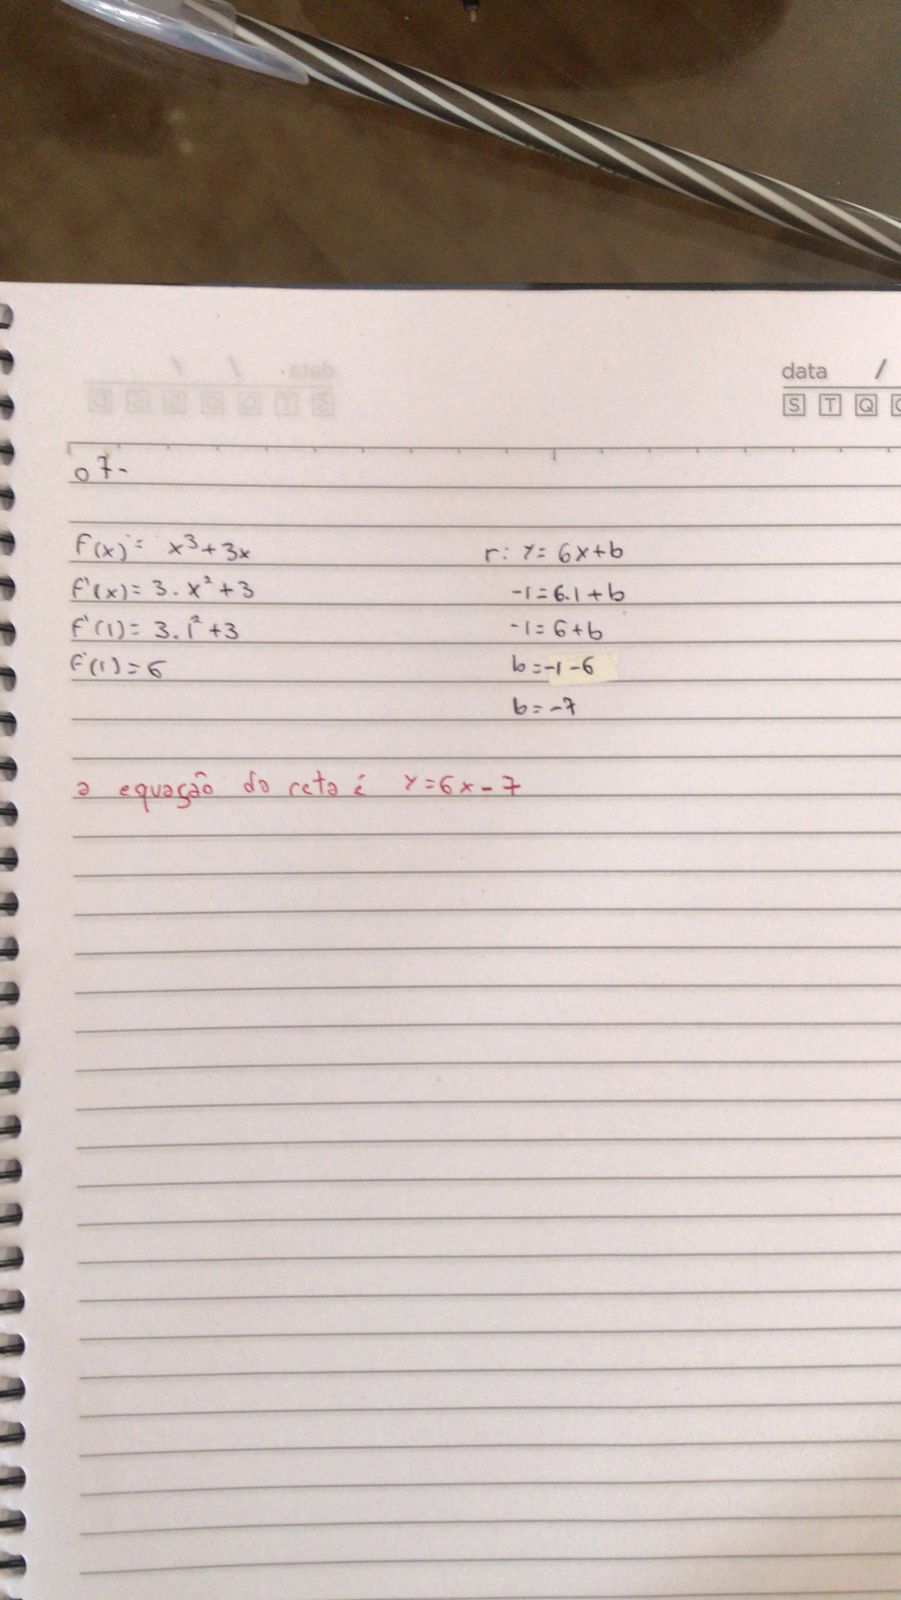 data /
S T Q
07-
F(x)= x³+3x
F'(x)= 3.x²+3
F'(1)= 3.1²+3
F'(1)=6
r: Y= 6x+b
-1=6.1+b
-1=6+b
b=-1-6
b=-7
a equação da reta é Y=6x-7